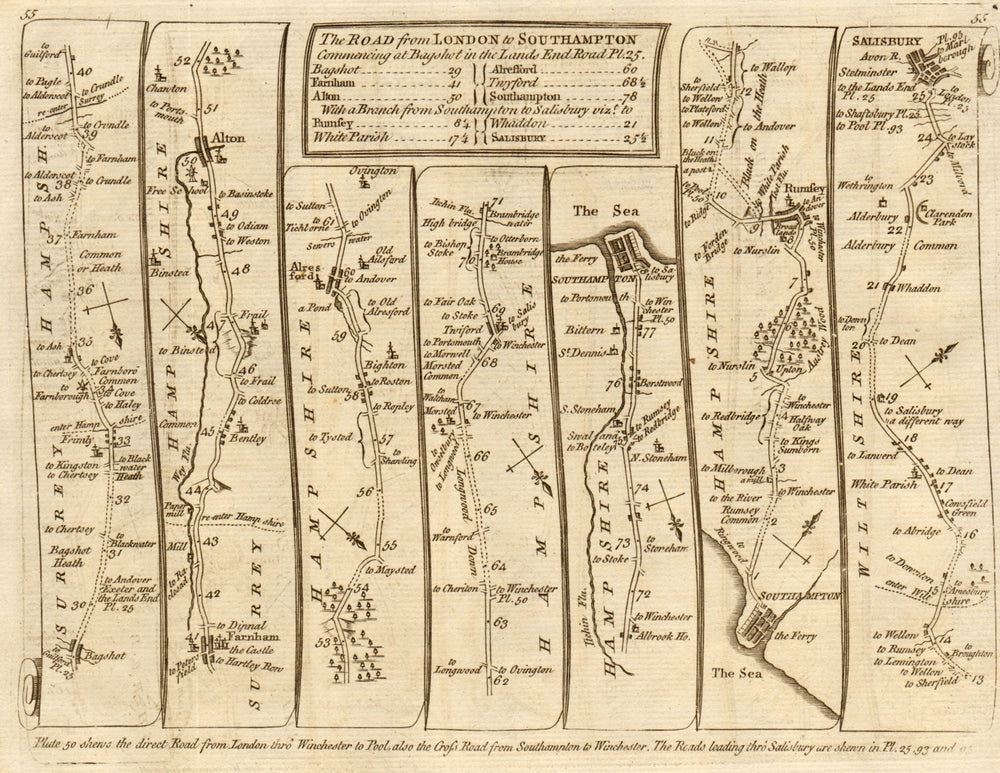 55
55
The ROAD from LONDON to SOUTHAMPTON
Commencing at Bagshot in the Lands End Road Pl. 25.
Bagshot 29
Farnham 41
Alton 50
Alresford 60
Twyford 68½
Southampton 78
With a Branch from Southampton to Salisbury viz.t to
Rumsey 8¼
White Parish 17¼
Whaddon 21
SALISBURY 25½
to Guilford
40
to Pagle
to Crundle
to Alderscot
re-enter Surrey
to Crundle
to Alderscot
39
to Farnham
to Alderscot
38
to Crundle
to Ash
37
Farnham
Common
or Heath
36
to Ash
35
to Cove
to Chertsey
Farnboro'
Common
to Farnborough
34
to Cove
to Haley
enter Hamp shire
Frimly
33
to Kingston
to Black
water
to Chertsey
Heath
32
to Chertsey
to Blackwater
31
Bagshot
Heath
to Andover
Exeter and
the Lands End
Pl. 25
30
Bagshot
to Guilford
Pl. 25
SURREY
HAMPSH.
52
Chawton
51
to Ports
mouth
Alton
50
Free School
to Basinstoke
49
to Odiam
to Weston
48
Binsted
47
Frail
to Binsted
46
to Frail
to Coldree
Common
45
Bentley
Wey Flu.
44
Paper
mill
re-enter Hamp shire
43
Mill
42
to Dipnal
41
Farnham
the Castle
to Peters
field
to Hartley Row
HAMP SHIRE
SURREY
Ovington
to Sutton
to Ovington
to Tichborne
61
Sewers
water
Old
Alsford
Alres
ford
60
to Andover
a Pond
to Old
Alresford
59
Bighton
to Roston
to Sutton
58
to Ropley
to Tysted
57
to Shawling
56
55
to Maysted
54
53
HAMP SHIRE
Itchin Flu.
71
High bridge
Brambridge
water
to Otterborn
to Bishop
Stoke
70
Brambridge
House
to Fair Oak
69
to Salis
bury
to Stoke
Twiford
to Winchester
to Portsmouth
to Morwell
68
Morsted
Common
to Waltham
67
Morsted
to Winchester
to Owselbery
to Longwood
66
Longwood Down
65
to Warnford
64
to Cheriton
to Winchester
Pl. 50
63
to Longwood
to Ovington
62
HAMP SHIRE
The Sea
the Ferry
SOUTHAMPTON
78
to Sa
lisbury
to Portsmouth
to Win
chester
Pl. 50
77
Bittern
St. Dennis
76
Borstwood
S. Stoneham
to Rumsey
to Redbridge
Swaland
75
to Boteley
N. Stoneham
74
to Stoneham
73
to Stoke
72
to Winchester
Albrook Ho.
Itshin Flu.
HAMP SHIRE
to Wallop
to Sherfield
12
to Wellow
to Plateford
the Heath
to Wellow
to Andover
11
Black on
the Heath
a post
Black on
White Parish
Post Flu.
Rumsey
10
to Ridge
9
to An
dover
Broad
lands
8
to Winchester
Pl. 50
Forden
Bridge
to Nurslin
7
6
Ampfrey Wood
to Nurslin
Upton
5
to Redbridge
4
to Winchester
Halfway
Oak
to Kings
Sumborn
to Milborough
a mill
3
to the River
to Winchester
Rumsey
Common
2
to Ringwood
1
SOUTHAMPTON
the Ferry
The Sea
HAMP SHIRE
SALISBURY
Pl. 95
to Marl
borough
Avon R.
Stetminster
to the Lands End
Pl. 25
to Ogdon
25
to Shaftsbury Pl. 25
to Pool Pl. 93
24
to Lay
stock
to Milvord
to Wethrington
23
Alderbury
Clarendon
Park
22
Alderbury
Common
21
Whaddon
to Down
ton
20
to Dean
19
to Salisbury
a different way
18
to Lanverd
to Dean
White Parish
17
Cowsfield
Green
to Abridge
16
to Downton
enter Wilt shire
15
to Amesbury
to Wellow
14
to Rumsey
to Broughton
to Lemington
to Wellow
13
to Sherfield
WILT SHIRE
Plate 50 shews the direct Road from London thro' Winchester to Pool, also the Cross Road from Southampton to Winchester. The Roads leading thro' Salisbury are shewn in Pl. 25, 93 and 95